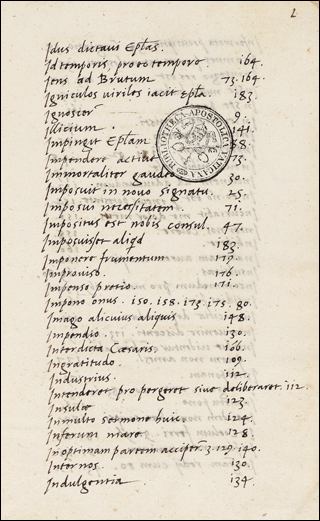 L
Idus dictavi Eplas.
Id temporis pro eo tempore. 164.
Iens ad Brutum 73. 164.
Igniculos viriles iacit epla. 183.
Ignoscor 9.
Illicium. 141.
Impingit Eplam 88.
Impendere active 73.
Immortaliter gaudeo 30.
Imposuit in novo signatu. 25.
Imposui necessitatem. 71.
Impositus est nobis consul. 47.
Imposuisset aliqd 183.
Imponere frumentum 119.
Improviso. 176.
Impenso pretio. 171.
Impono onus. 150. 158. 173. 175. 80.
Imago alicuius aliquis 148.
Impendio. 130.
Interdicta Cæsaris. 166.
Ingratitudo. 109.
Industrius. 112.
Intenderet pro pergeret sive deliberaret. 112.
Insulæ 123.
Inmulto sermone huic. 124.
Inferum mare. 128.
In optimam partem acciper. 3. 129. 140.
Inter nos. 130.
Indulgentia. 134.